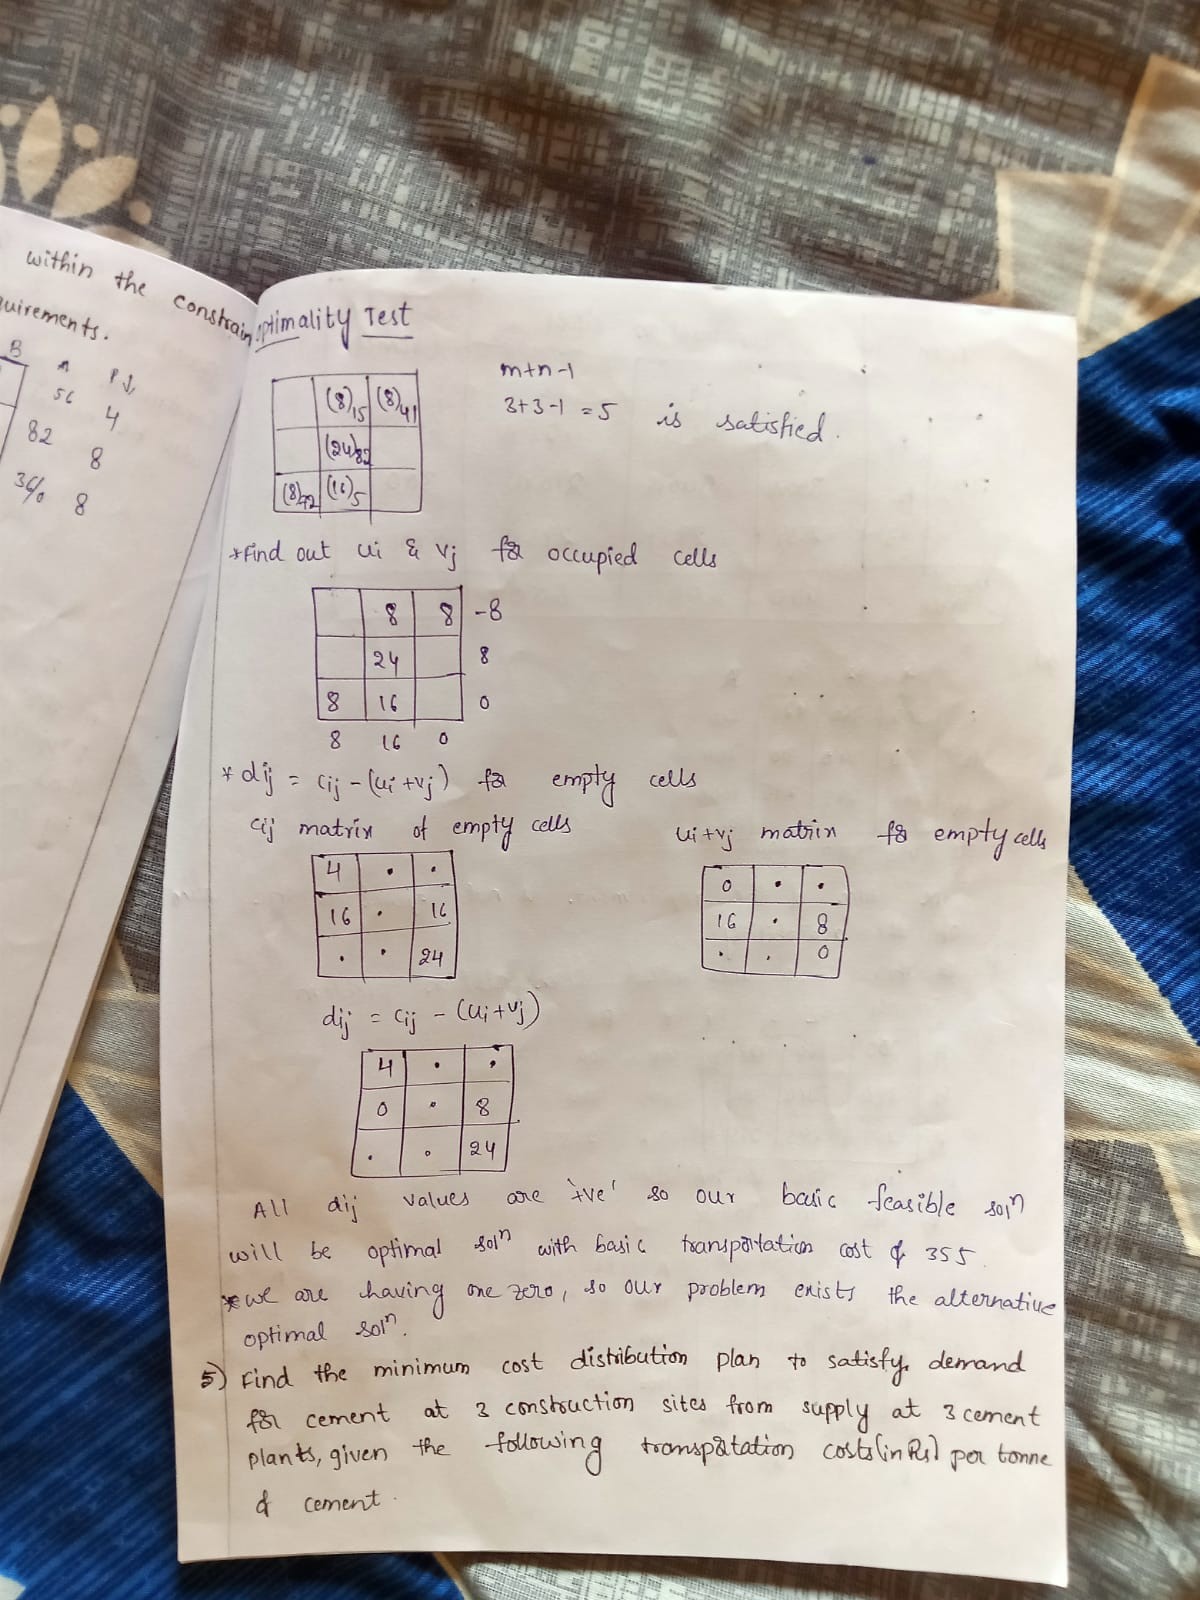 within the constrain
quirements.
B
A
PJ,
56
4
82
8
36/0
8
optimality Test
(8)15 (8)41
(24)82
(8)72 (16)5
m+n-1
3+3-1 = 5 is satisfied.
*Find out ui & vj for occupied cells
8 8 -8
24 8
8 16 0
8 16 0
* dij = cij - (ui + vj) for empty cells
cij matrix of empty cells
4 . .
16 . 16
. . 24
ui+vj matrix for empty cells
0 . .
16 . 8
. . 0
dij = cij - (ui+vj)
4 . .
0 . 8
. . 24
All dij values are '+ve' so our basic feasible solⁿ
will be optimal solⁿ with basic transportation cost of 355.
*we are having one zero, so our problem exists the alternative
optimal solⁿ.
5) Find the minimum cost distribution plan to satisfy demand
for cement at 3 construction sites from supply at 3 cement
plants, given the following transportation costs (in Rs) per tonne
of cement.